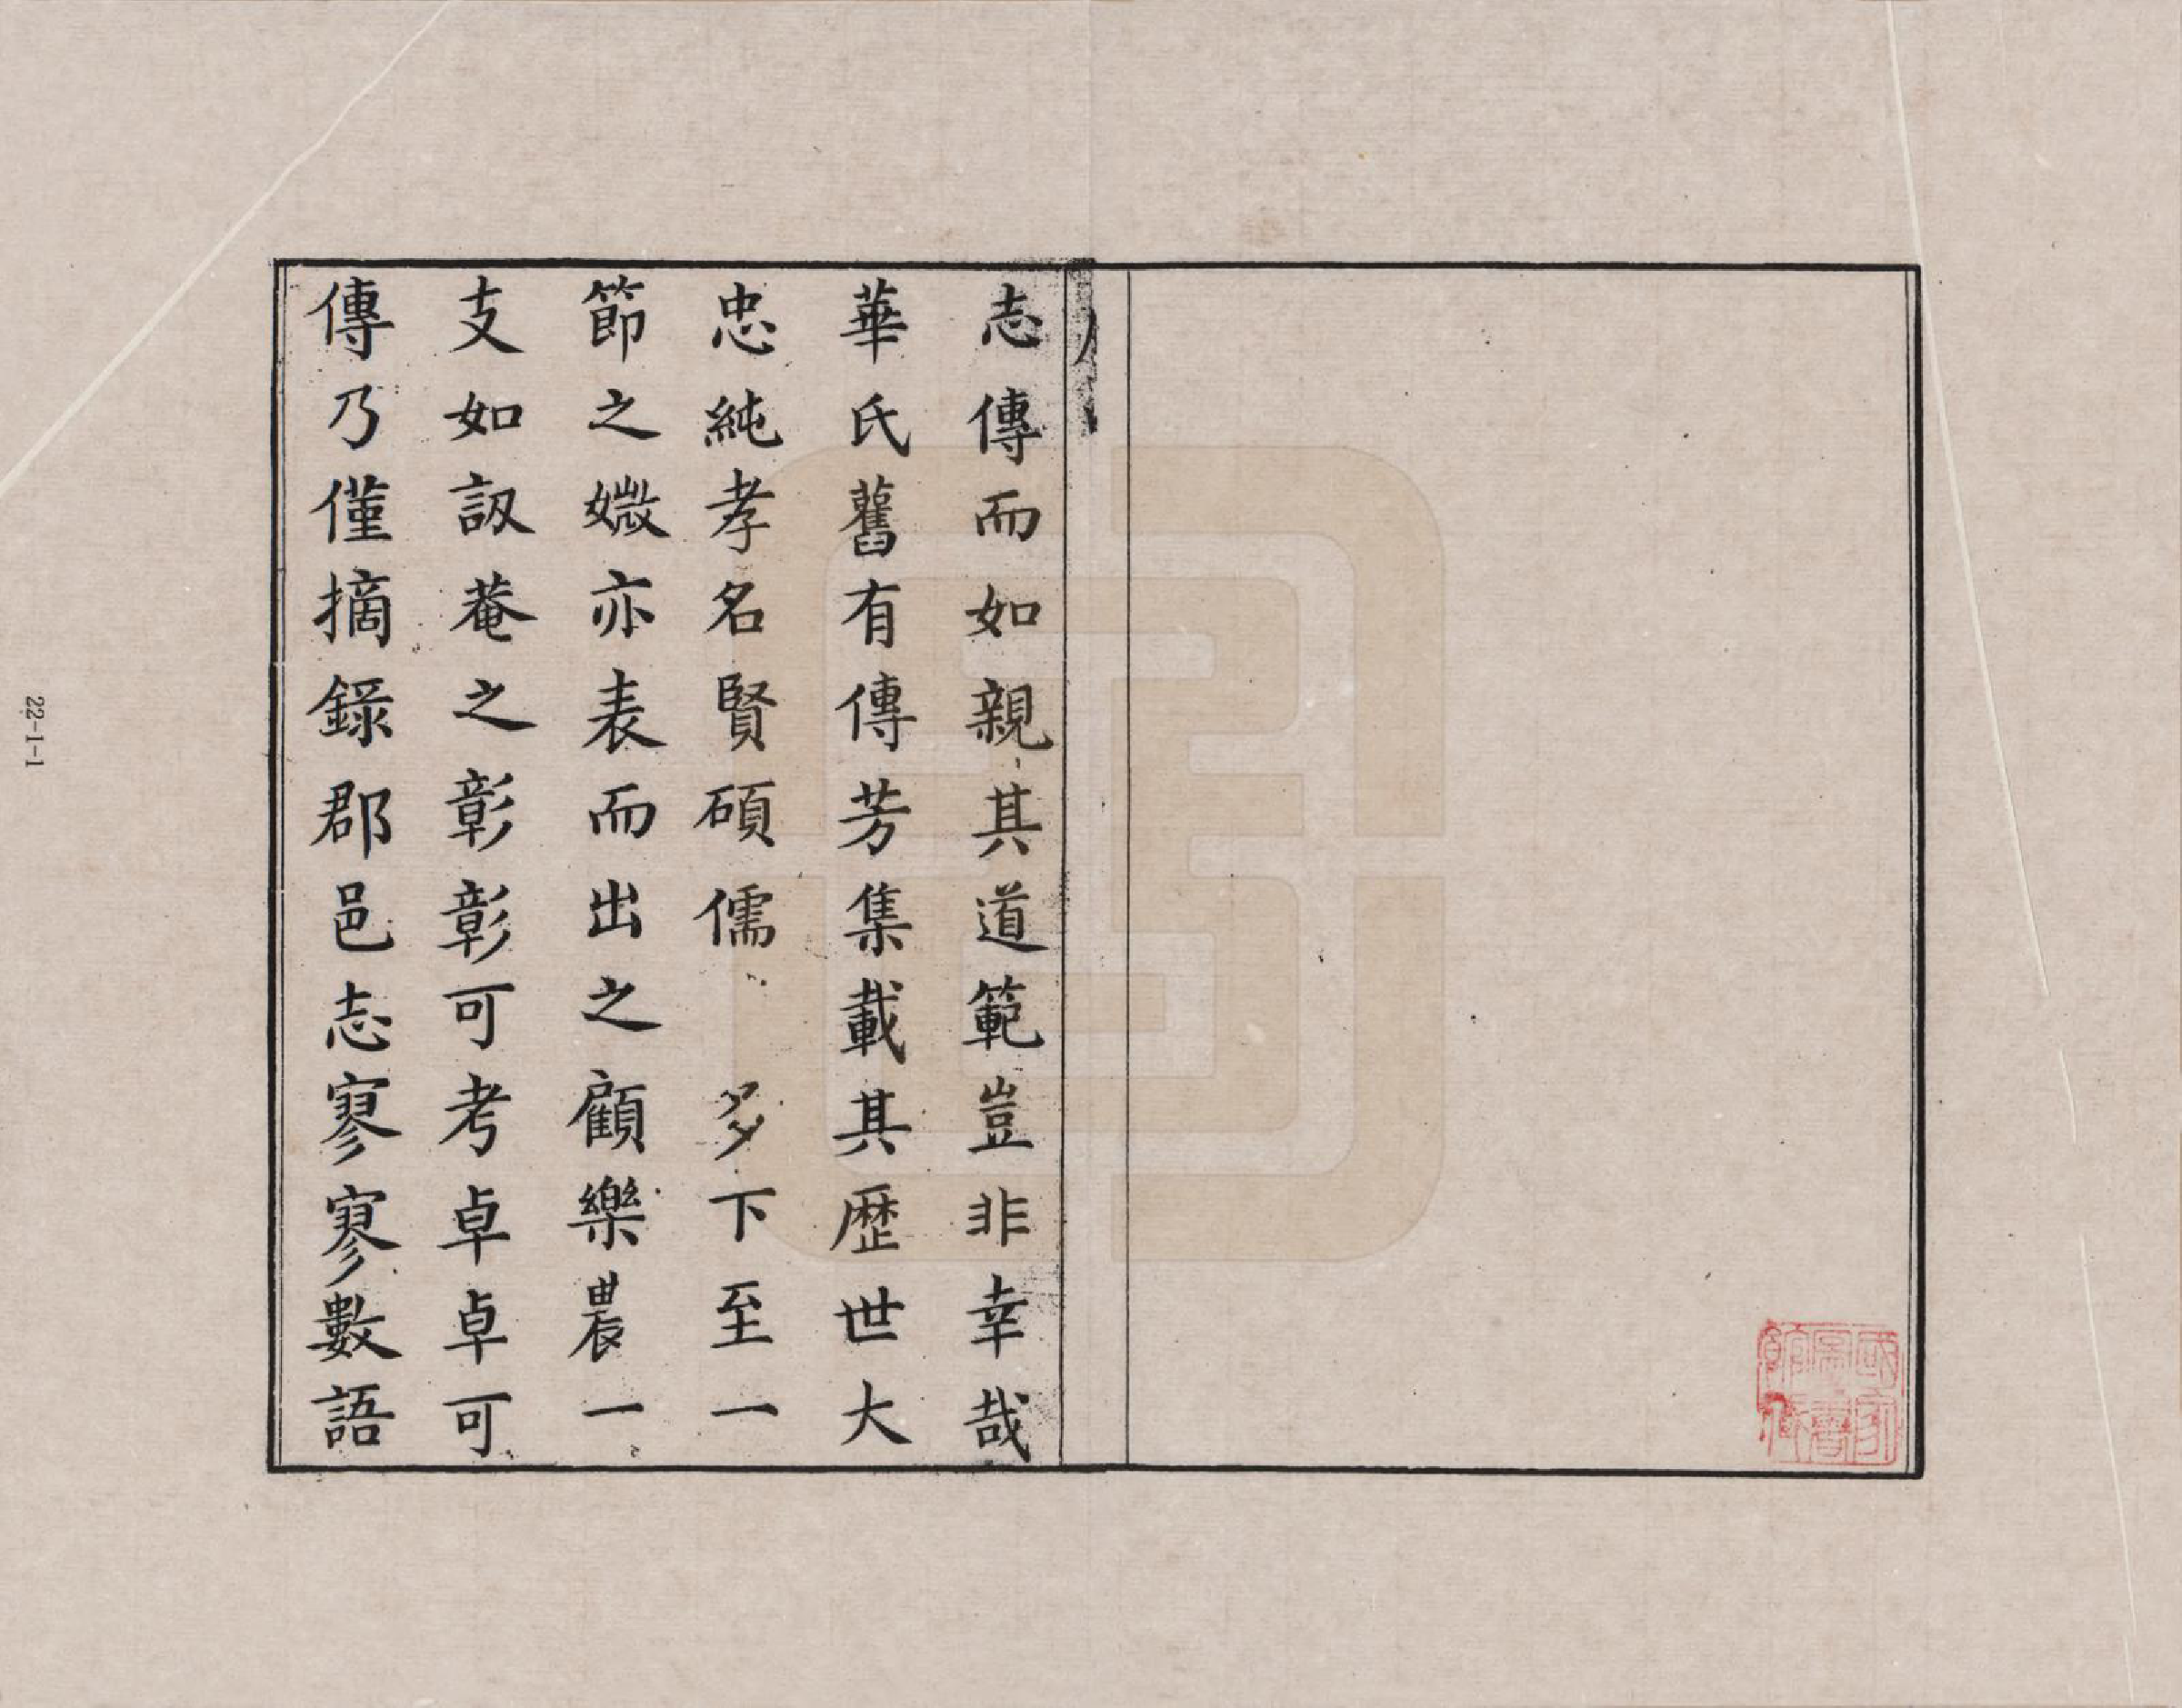 志傳而如親其道範豈非幸哉
華氏舊有傳芳集載其歷世大
忠純孝名賢碩儒 多下至一
節之媺亦表而出之顧樂農一
支如訒菴之彰彰可考卓卓可
傳乃僅摘錄郡邑志寥寥數語
國家圖書館藏
22-1-1